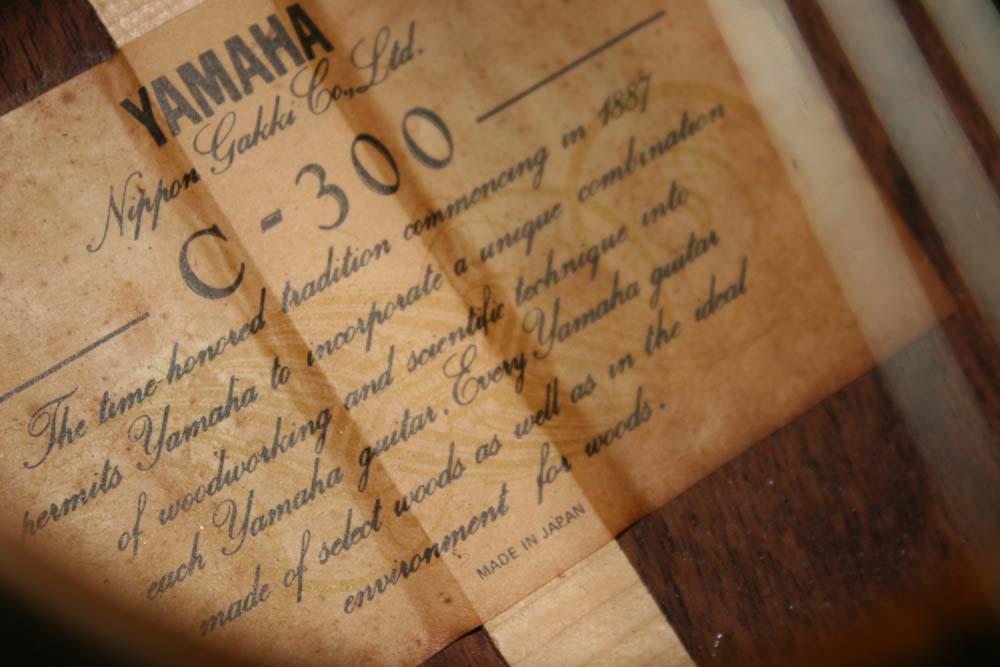 YAMAHA
Nippon Gakki Co., Ltd.
C-300
The time-honored tradition commencing in 1887
permits Yamaha to incorporate a unique combination
of woodworking and scientific technique into
each Yamaha guitar. Every Yamaha guitar
made of select woods as well as in the ideal
environment for woods.
MADE IN JAPAN